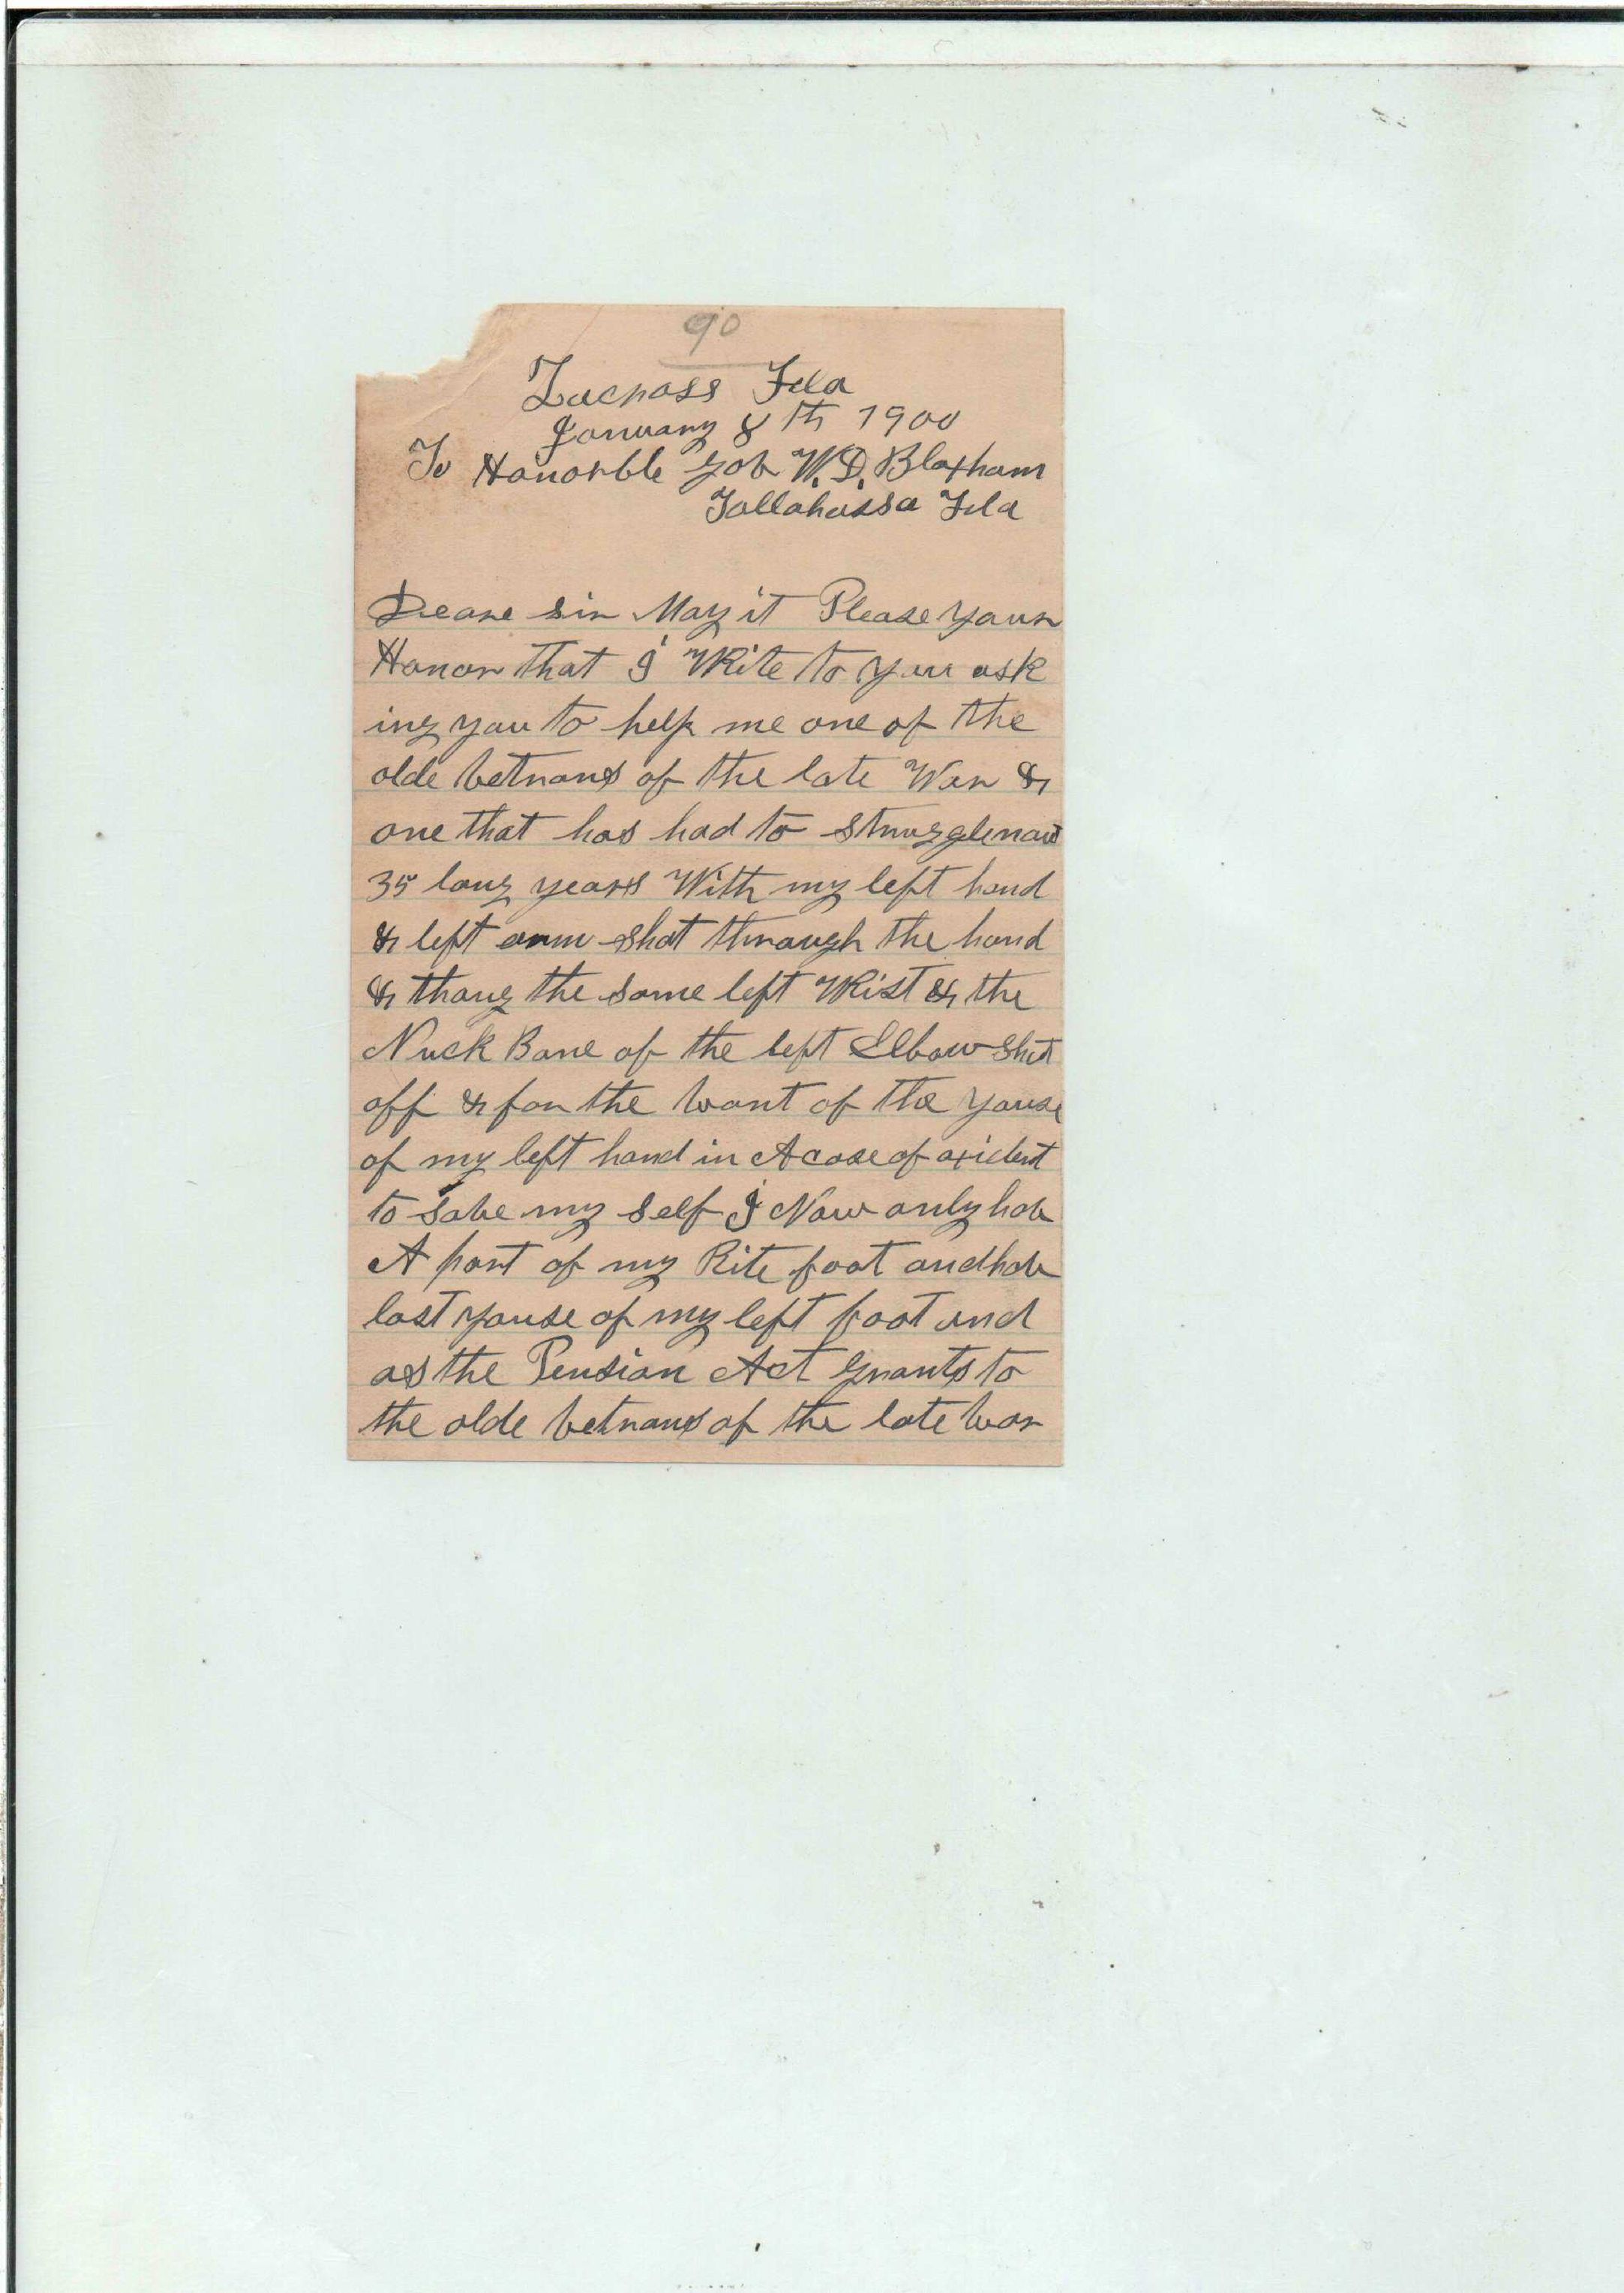 90
Lacross Fla
January 8th 1900
To Honorble Gov W.D. Bloxham
Tallahassa Fla
Deare sir May it Please your
Honor that I Write to you ask
ing you to help me one of the
olde vetrans of the late War &
one that has had to struggle now
35 long years With my left hand
& left arm shot through the hand
& thoug the same left Wrist & the
Nuck Bone of the left Elbow shot
off & for the want of the youse
of my left hand in A case of axident
to save my self I Now only hav
A part of my Rite foot and hav
lost youse of my left foot and
as the Pension Act grants to
the olde vetrans of the late war